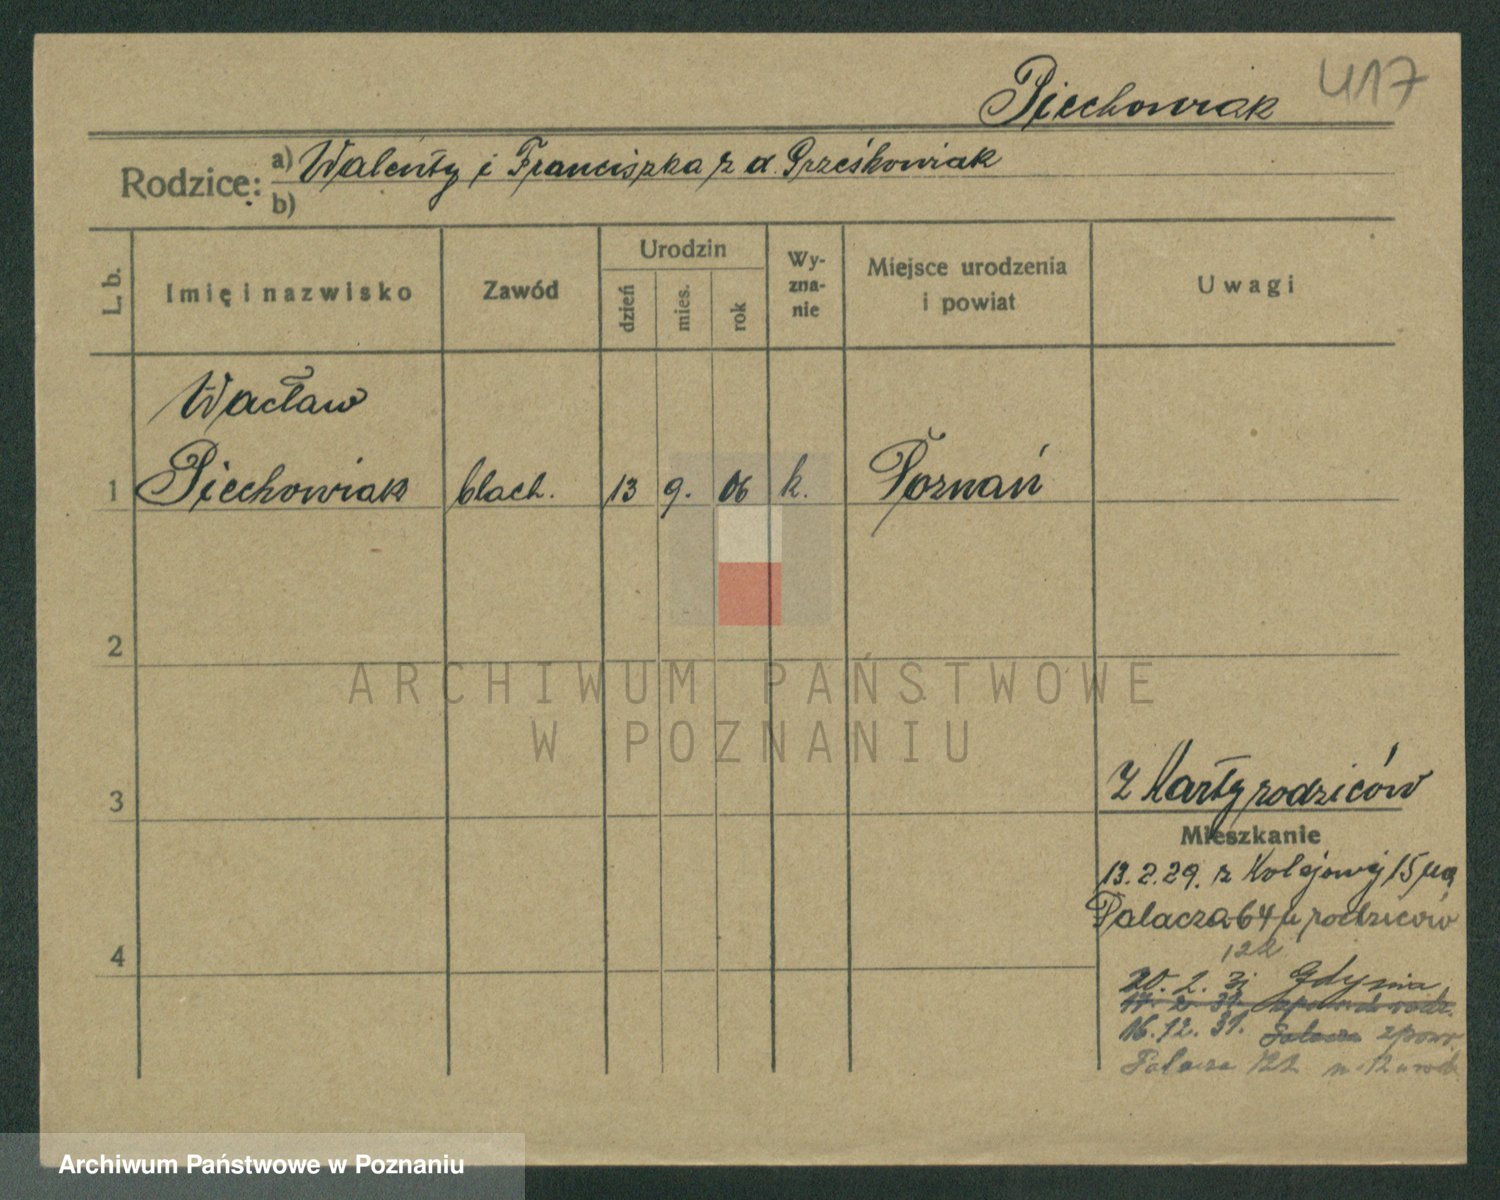 Piechowiak 417
Rodzice: a) Walenty i Franciszka z d. Prześkowiak
b)
L. b. Imię i nazwisko Zawód Urodzin dzień mies. rok Wy-zna-nie Miejsce urodzenia i powiat Uwagi
Wacław
1 Piechowiak blach. 13 9. 06 k. Poznań
2
ARCHIWUM PAŃSTWOWE
W POZNANIU
Z Karty rodziców
3
Mieszkanie
13.2.29. z Kolejowej 15 na
Palacza 64 u rodziców
122
4
20. 2. 31 Gdynia
16.12. 31. Palacza zpow.
Palacza 122
Archiwum Państwowe w Poznaniu